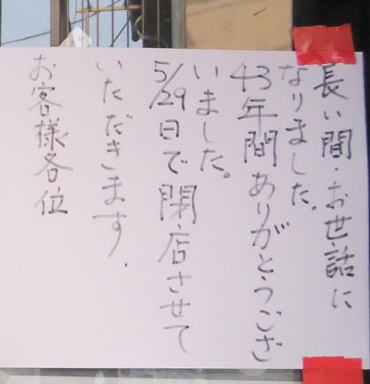 長い間・お世話に
なりました。
43年間ありがとうござ
いました。
5/29日で閉店させて
いただきます.
お客様各位